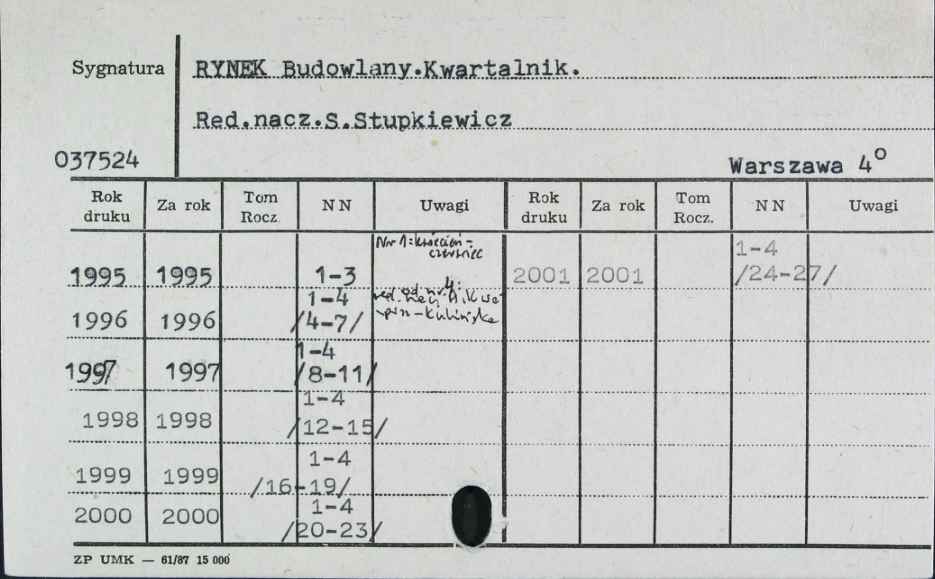 Sygnatura RYNEK Budowlany.Kwartalnik.
Red.nacz.S.Stupkiewicz
037524 Warszawa 4°
Rok druku Za rok Tom Rocz. NN Uwagi Rok druku Za rok Tom Rocz. NN Uwagi
Nr 1: kwiecień-
czerwiec
1995 1995 1-3 2001 2001 1-4 /24-27/
1996 1996 1-4 /4-7/ od nr 4:
red. nacz. A. Kulińska
1997 1997 1-4 /8-11/
1998 1998 1-4 /12-15/
1999 1999 1-4 /16-19/
2000 2000 1-4 /20-23/
ZP UMK — 61/87 15 000